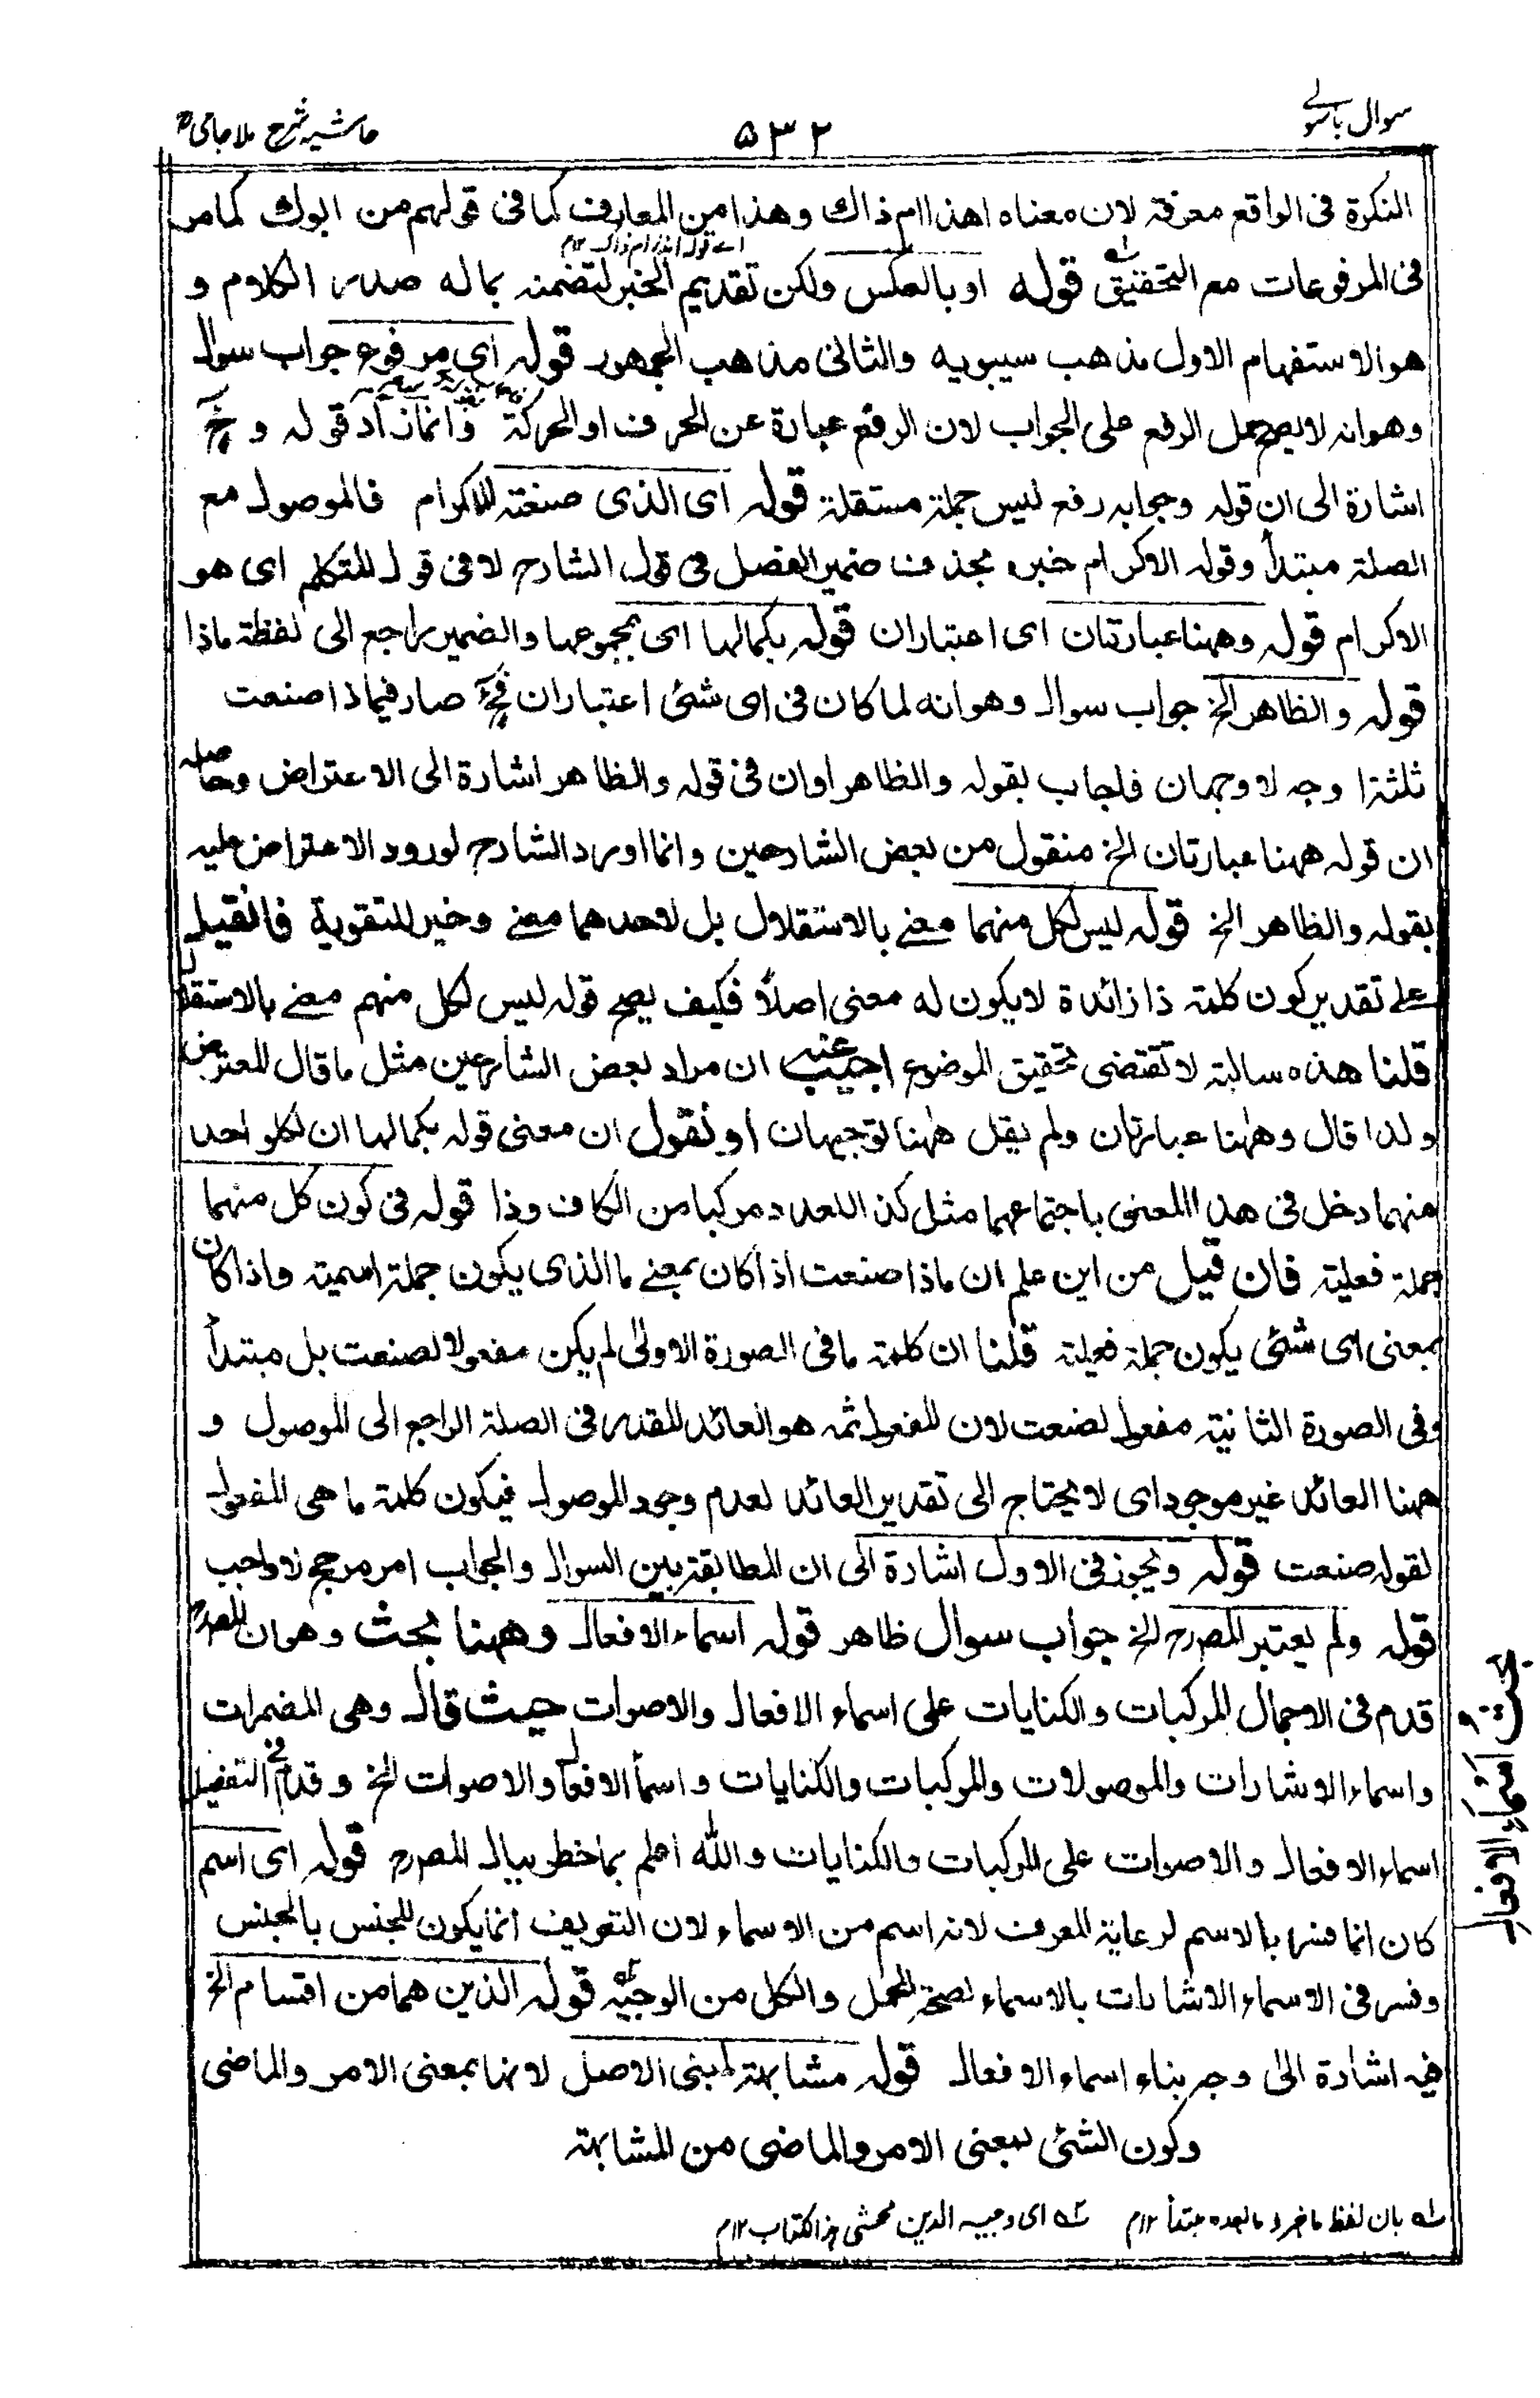 سوال باسولے
۵۳۲
حاشیہ شرح ملا جامی
النکرة فی الواقع معرفة لان معناه اهذا ام ذاك وهذا من المعارف كما فی قولهم من ابوك كما مر
اے قوله اهذا ام ذاك ۱۲م
فی المرفوعات مع التحقیق قوله او بالعکس ولکن تقدیم الخبر لتضمنه بما له صدر الکلام و
هو الاستفهام الاول مذهب سیبویه والثانی مذهب الجمهور قوله ای مرفوع جواب سوال
وهو انه لا یصح حمل الرفع علی الجواب لان الرفع عبارة عن الحرف او الحركة وانما زاد قوله و ح
اشارة الی ان قوله وجوابه رفع لیس جملة مستقلة قوله ای الذی صنعته الاکرام فالموصول مع
الصلة مبتدأ وقوله الاکرام خبره بحذف ضمیر الفصل فی قول الشارح لا فی قول المتکلم ای هو
الاکرام قوله وههنا عبارتان ای اعتباران قوله بکمالها ای بمجموعها والضمیر راجع الی لفظة ماذا
قوله والظاهر الخ جواب سوال وهو انه لما کان فی ای شئی اعتباران فح صار فیماذا صنعت
ثلثة اوجه لا وجهان فاجاب بقوله والظاهر او ان فی قوله والظاهر اشارة الی الاعتراض وحاصله
ان قوله ههنا عبارتان الخ منقول من بعض الشارحین وانما اورد الشارح لورود الاعتراض علیه
بقوله والظاهر الخ قوله لیس لکل منهما معنے بالاستقلال بل لاحدهما معنے وخیر للتقویة فان قیل
علے تقدیر کون کلمة ذا زائدة لا یکون له معنی اصلاً فکیف یصح قوله لیس لکل منهم معنے بالاستقلال
قلنا هذه سالبة لا تقتضی تحقیق الموضوع اجیب عنه ان مراد بعض الشارحین مثل ما قال المعترض
ولذا قال وههنا عبارتان ولم یقل ههنا توجیهان او نقول ان معنی قوله بکمالها ان لکل واحد
منهما دخل فی هذا المعنی باجتماعهما مثل کذا للعدد مرکبا من الکاف وذا قوله فی کون کل منهما
جملة فعلیة فان قیل من این علم ان ماذا صنعت اذا کان بمعنے ما الذی یکون جملة اسمیة واذا کان
بمعنی ای شئی یکون جملة فعلیة قلنا ان کلمة ما فی الصورة الاولی لم یکن مفعولا لصنعت بل مبتدأ
وفی الصورة الثانیة مفعول لصنعت لان المفعول ثمه هو العائد المقدر فی الصلة الراجع الی الموصول و
ههنا العائد غیر موجود ای لا یحتاج الی تقدیر العائد لعدم وجود الموصول فیکون کلمة ما هی المفعول
لقوله صنعت قوله ویجوز فی الاول اشارة الی ان المطابقة بین السوال والجواب امر مرجح لا واجب
قوله ولم یعتبر المصرح الخ جواب سوال ظاهر قوله اسماء الافعال وههنا بحث وهو ان المصرح
قدم فی الاجمال المرکبات والکنایات علی اسماء الافعال والاصوات حیث قال وهی المضمرات
واسماء الاشارات والموصولات والمرکبات والکنایات واسماء الافعال والاصوات الخ وقدم فی التفصیل
اسماء الافعال والاصوات علی المرکبات والکنایات والله اعلم بما خطر ببال المصرح قوله ای اسم
کان انما فسر بالاسم لرعایة المعرف لانه اسم من الاسماء لان التعریف انما یکون للجنس بالجنس
وفسر فی الاسماء الاشارات بالاسماء لصحة الحمل والکل من الوجیه قوله الذین هما من اقسام الخ
فیه اشارة الی وجه بناء اسماء الافعال قوله مشابهة لمبنی الاصل لانها بمعنی الامر والماضی
وکون الشئی بمعنی الامر والماضی من المشابهة
بحث اسماء الافعال
لہ بان لفظ ما خبر وما بعده مبتدأ ۱۲م  ۲ہ ای وجیه الدین محشی هذا الکتاب ۱۲م